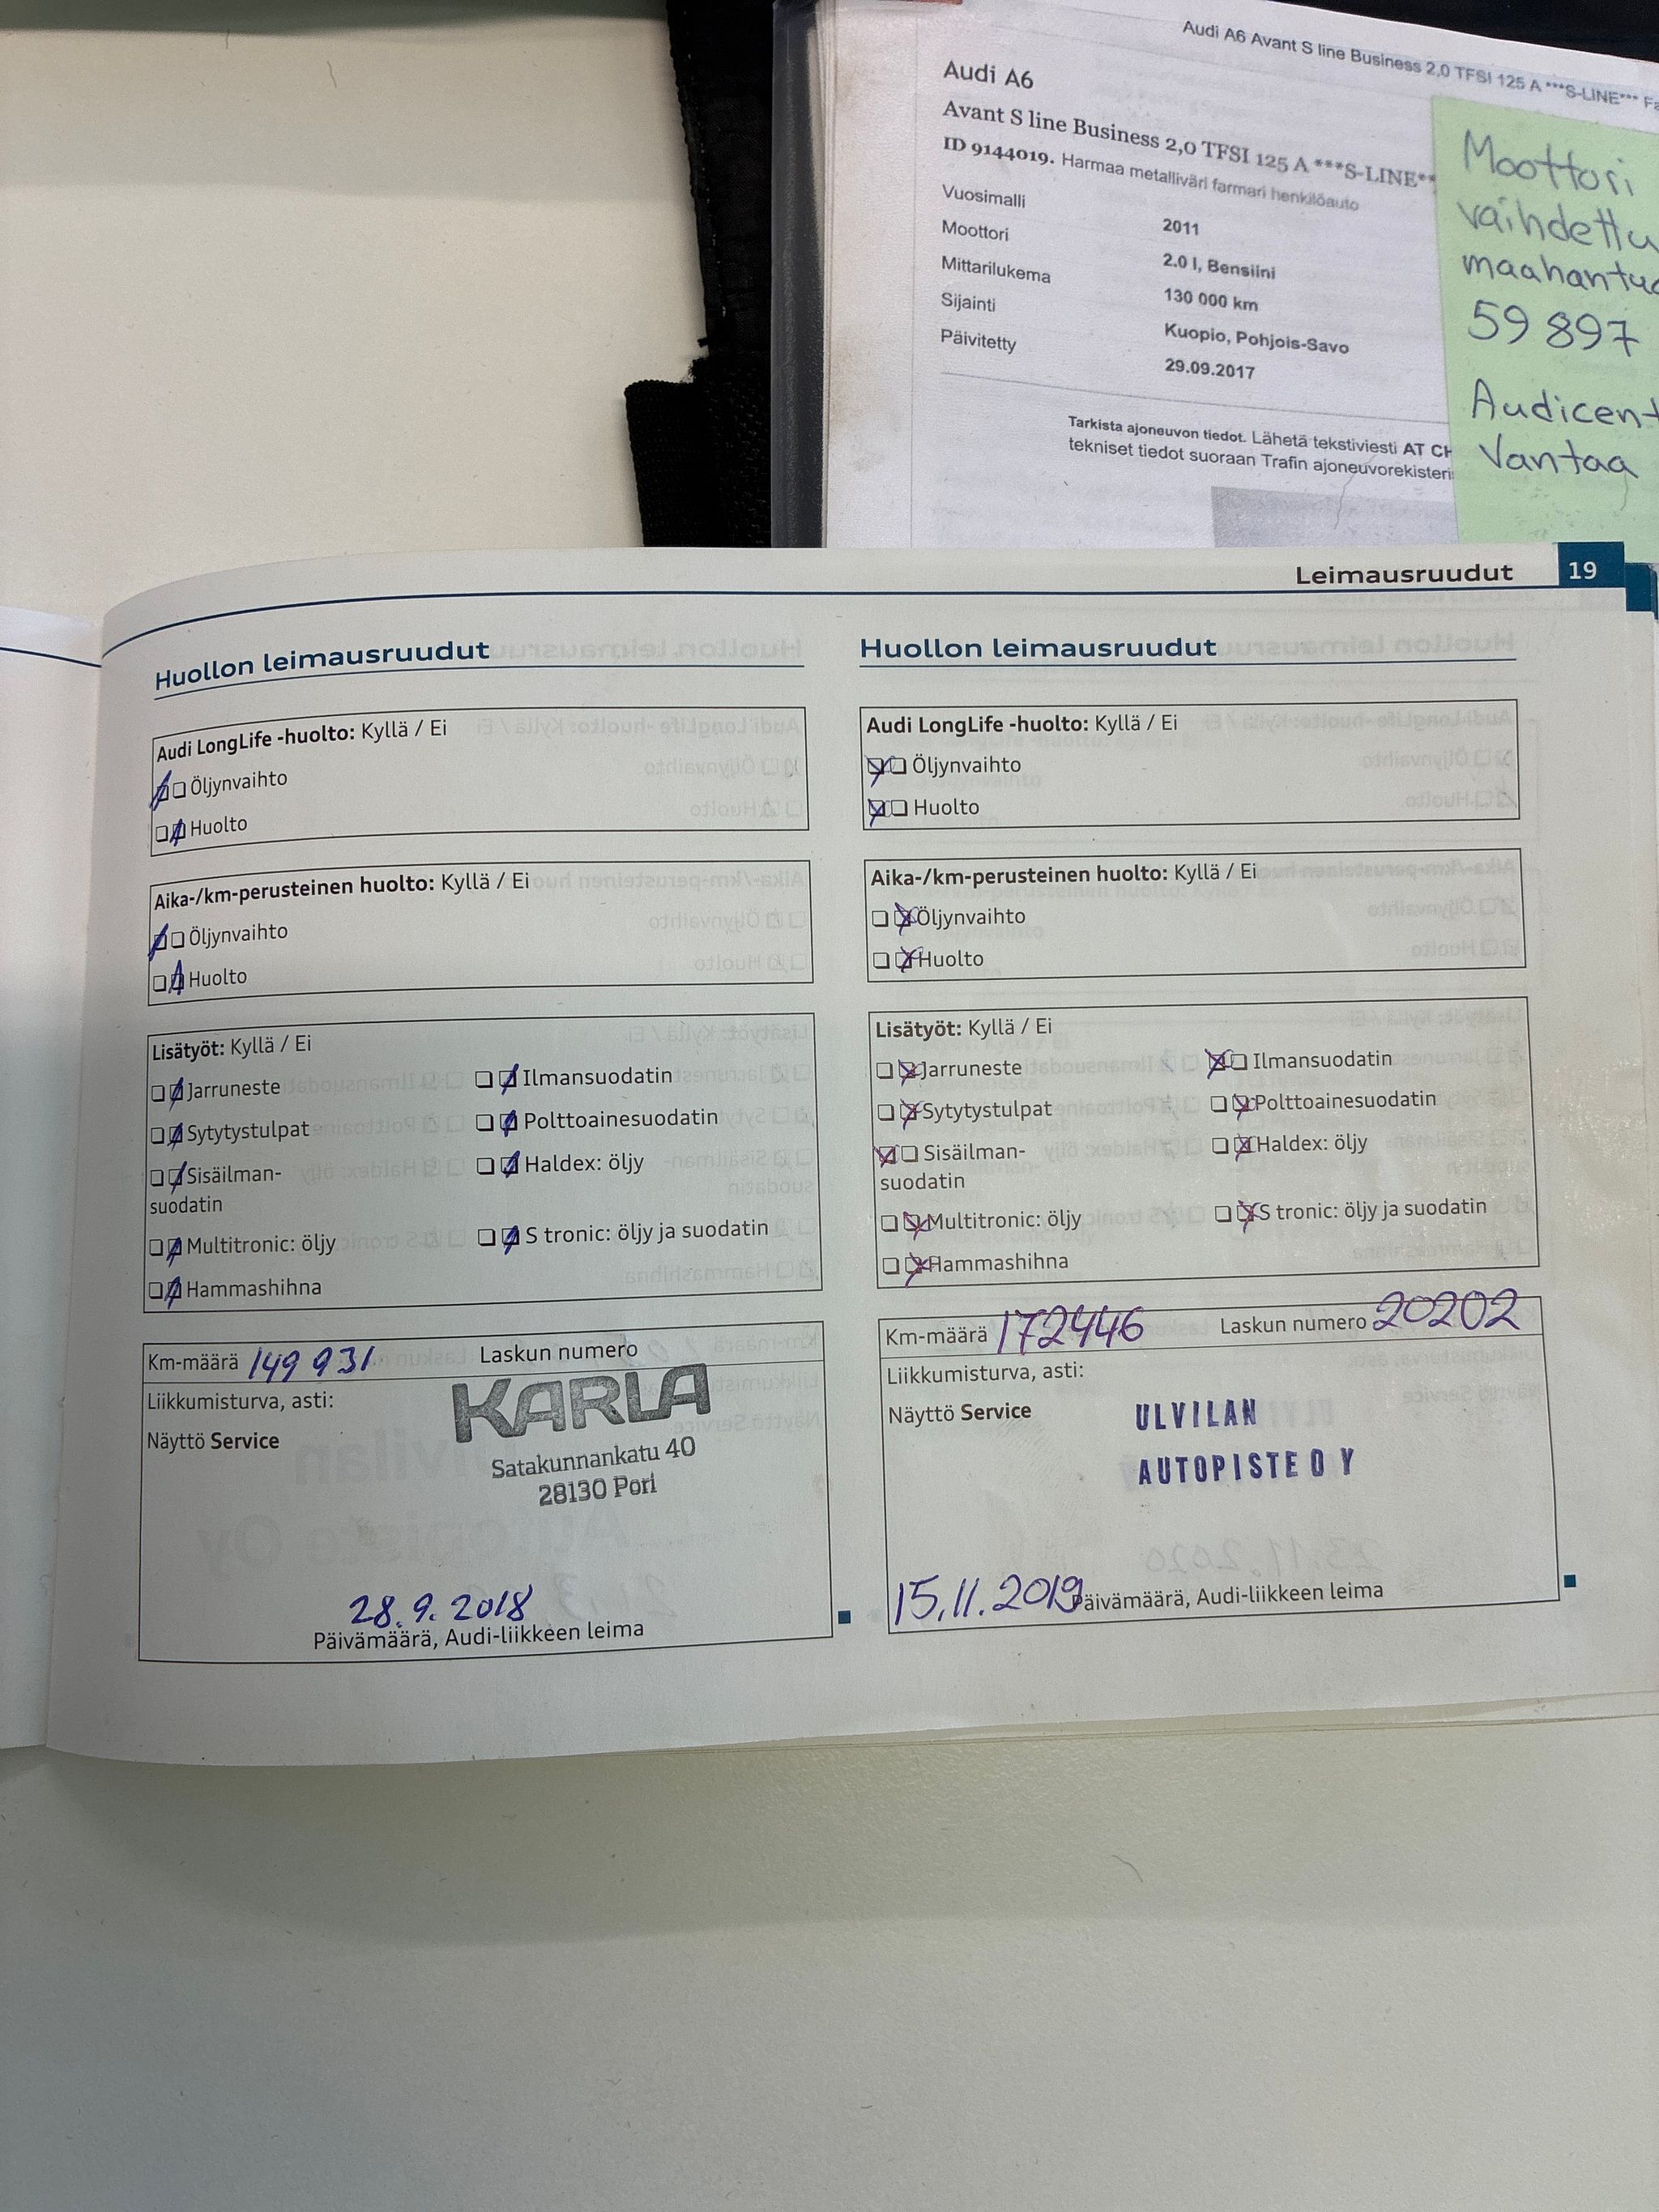 Audi A6 Avant S line Business 2,0 TFSI 125 A ***S-LINE***
Audi A6
Avant S line Business 2,0 TFSI 125 A ***S-LINE**
ID 9144019. Harmaa metalliväri farmari henkilöauto
Vuosimalli 2011
Moottori 2.0 l, Bensiini
Mittarilukema 130 000 km
Sijainti Kuopio, Pohjois-Savo
Päivitetty 29.09.2017
Tarkista ajoneuvon tiedot. Lähetä tekstiviesti AT
tekniset tiedot suoraan Trafin
Moottori
vaihdettu
59 897
Vantaa
Leimausruudut 19
Huollon leimausruudut
Audi LongLife -huolto: Kyllä / Ei
Öljynvaihto
Huolto
Aika-/km-perusteinen huolto: Kyllä / Ei
Öljynvaihto
Huolto
Lisätyöt: Kyllä / Ei
Jarruneste Ilmansuodatin
Sytytystulpat Polttoainesuodatin
Sisäilman- Haldex: öljy
suodatin
Multitronic: öljy S tronic: öljy ja suodatin
Hammashihna
Km-määrä 149 931 Laskun numero
Liikkumisturva, asti:
Näyttö Service
KARLA
Satakunnankatu 40
28130 Pori
28.9.2018
Päivämäärä, Audi-liikkeen leima
Huollon leimausruudut
Audi LongLife -huolto: Kyllä / Ei
Öljynvaihto
Huolto
Aika-/km-perusteinen huolto: Kyllä / Ei
Öljynvaihto
Huolto
Lisätyöt: Kyllä / Ei
Jarruneste Ilmansuodatin
Sytytystulpat Polttoainesuodatin
Sisäilman- Haldex: öljy
suodatin
Multitronic: öljy S tronic: öljy ja suodatin
Hammashihna
Km-määrä 172446 Laskun numero 20202
Liikkumisturva, asti:
Näyttö Service
ULVILAN
AUTOPISTE OY
15.11.2019 Päivämäärä, Audi-liikkeen leima